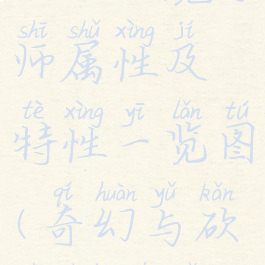 shī shǔ xìng jí
师属性及
tè xìng yī lǎn tú
特性一览图
qí huàn yǔ kǎn
(奇幻与砍